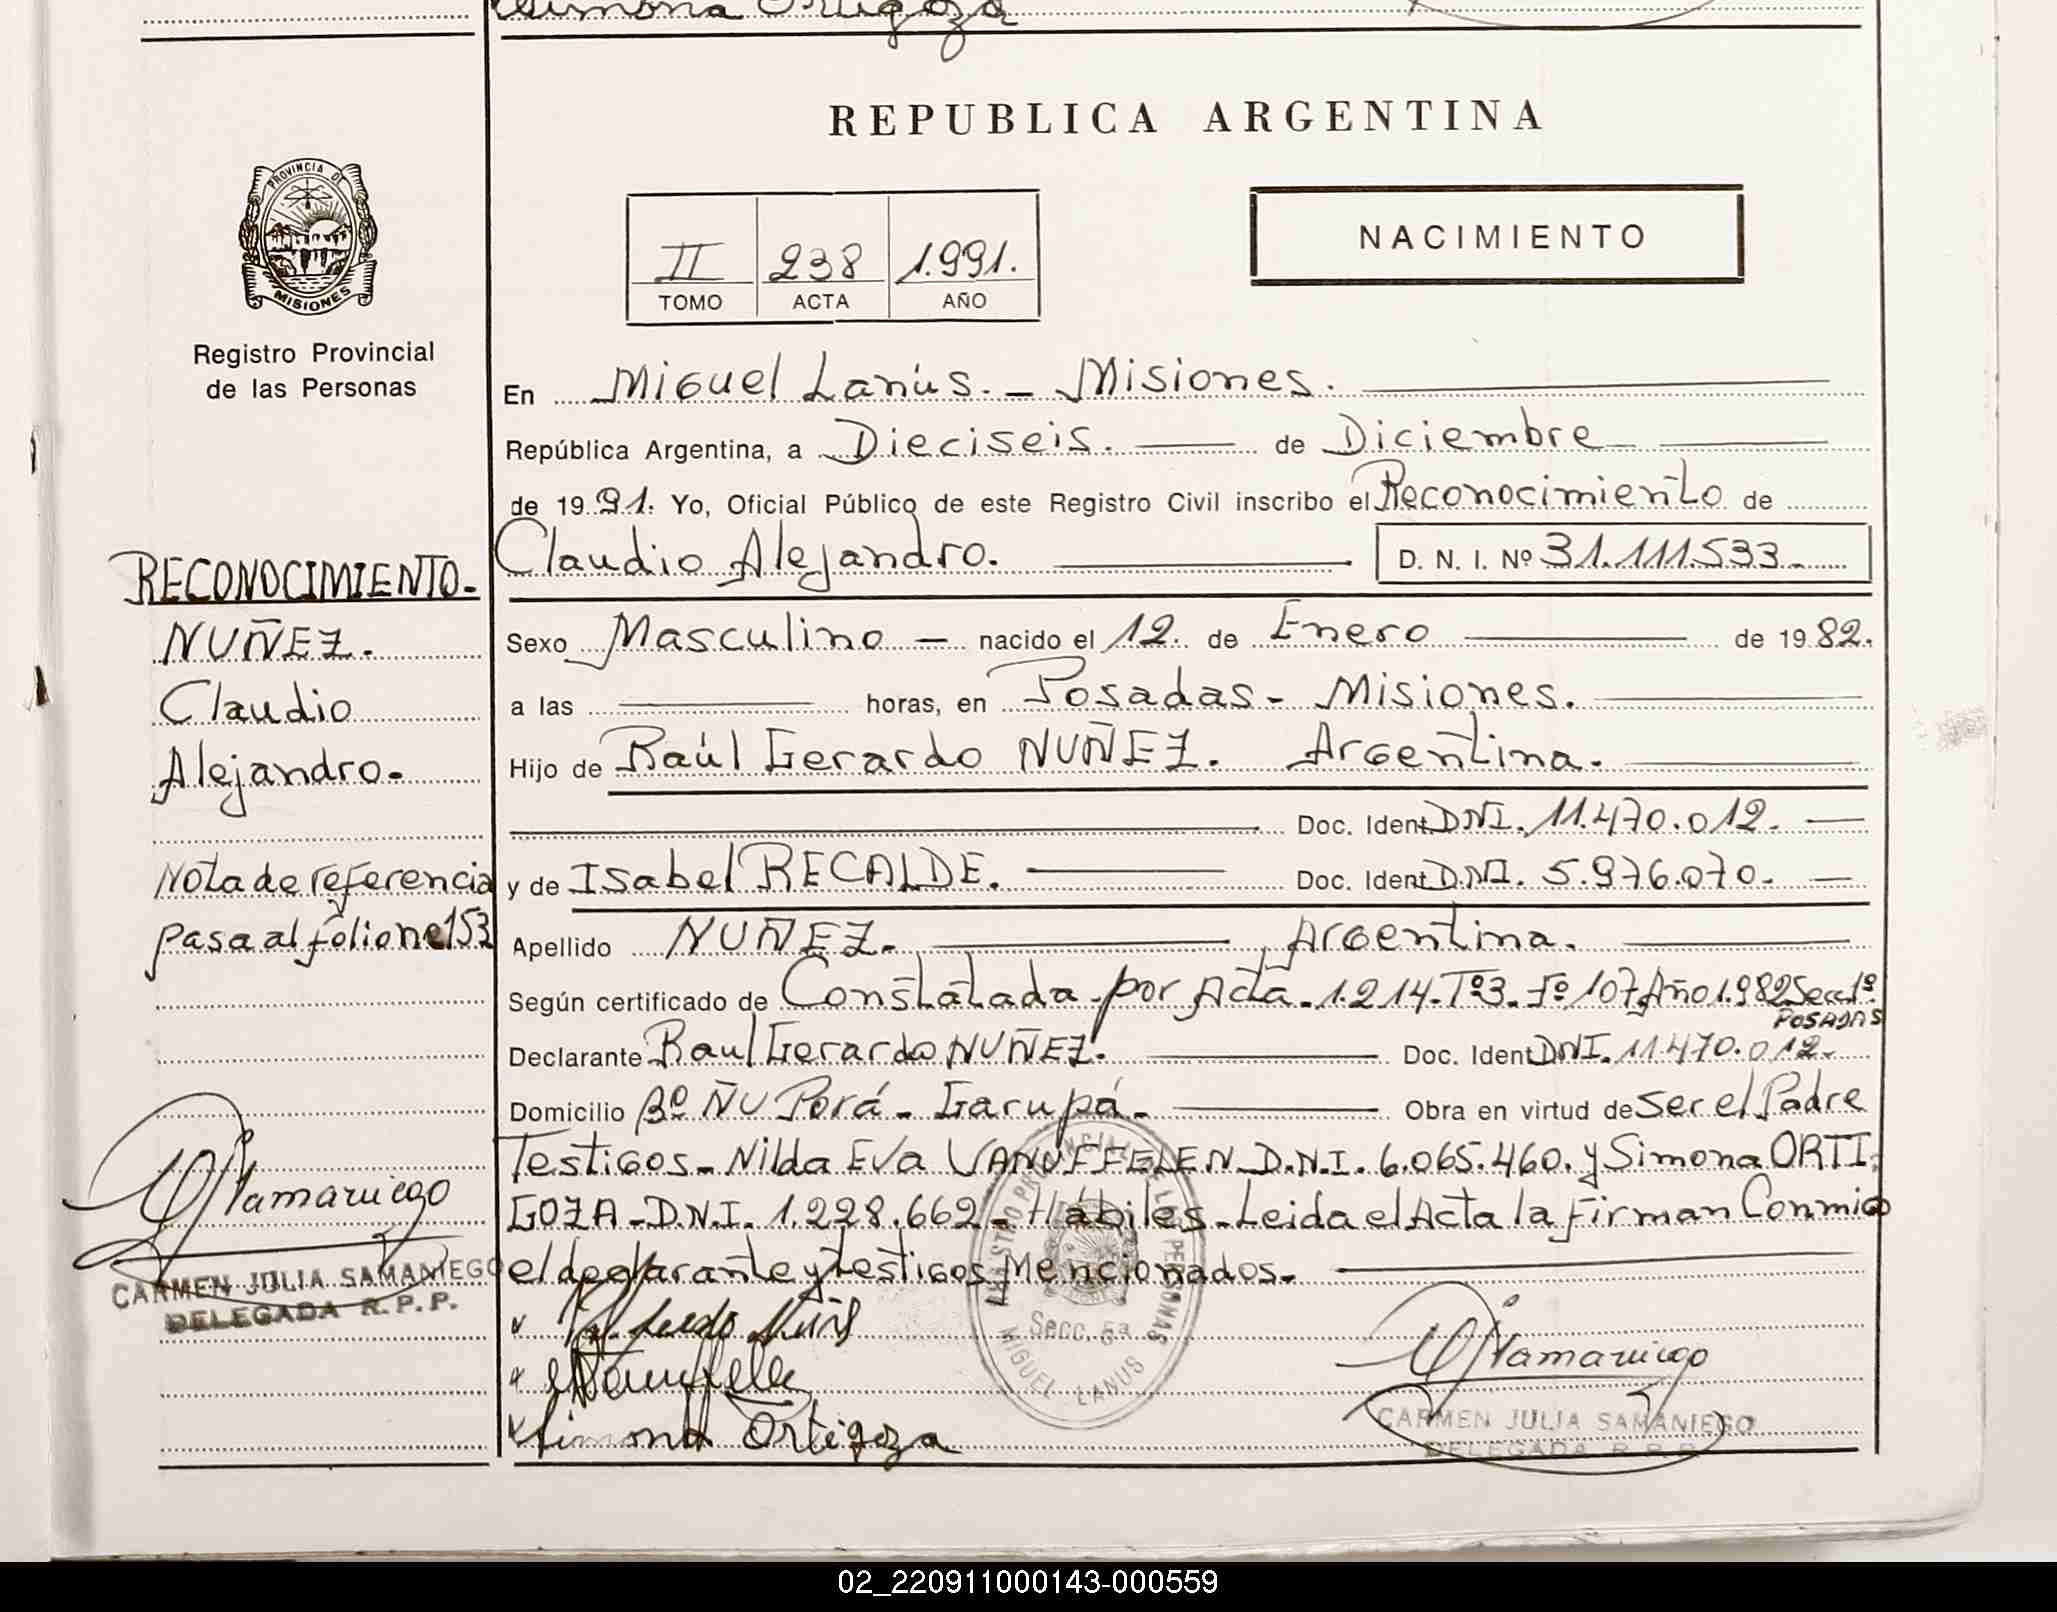 Simona Ortigoza
REPUBLICA ARGENTINA
PROVINCIA DE
MISIONES
Registro Provincial
de las Personas
II 238 1.991.
TOMO ACTA AÑO
NACIMIENTO
En Miguel Lanús. - Misiones.
República Argentina, a Dieciseis. de Diciembre
de 19 91. Yo, Oficial Público de este Registro Civil inscribo el Reconocimiento de
Claudio Alejandro. D. N. I. Nº 31.111.533.
Sexo Masculino - nacido el 12. de Enero de 19 82.
a las horas, en Posadas - Misiones.
Hijo de Raúl Gerardo NUÑEZ. Argentina.
Doc. Ident DNI. 11.470.012.
y de Isabel RECALDE. Doc. Ident D.N.I. 5.976.070.
Apellido NUÑEZ. Argentina.
Según certificado de Constatada por Acta. 1.214. Tº3. Fº 107 Año 1.982 Secc 1º
POSADAS
Declarante Raul Gerardo NUÑEZ. Doc. Ident DNI. 11.470.012.
Domicilio Bº ÑU Porá - Garupá. Obra en virtud de ser el Padre
Testigos - Nilda Eva VANUFFELEN D.N.I. 6.065.460. y Simona ORTI
GOZA - D.N.I. 1.228.662 - Hábiles - Leida el Acta la firman Conmigo
el declarante y testigos Mencionados.
RECONOCIMIENTO.
NUÑEZ.
Claudio
Alejandro.
Nota de referencia
pasa al folio ne 153
CARMEN JULIA SAMANIEGO
DELEGADA R.P.P.
Secc. 5ª
MIGUEL LANUS
Simona Ortigoza
CARMEN JULIA SAMANIEGO
DELEGADA R.P.P.
02_220911000143-000559